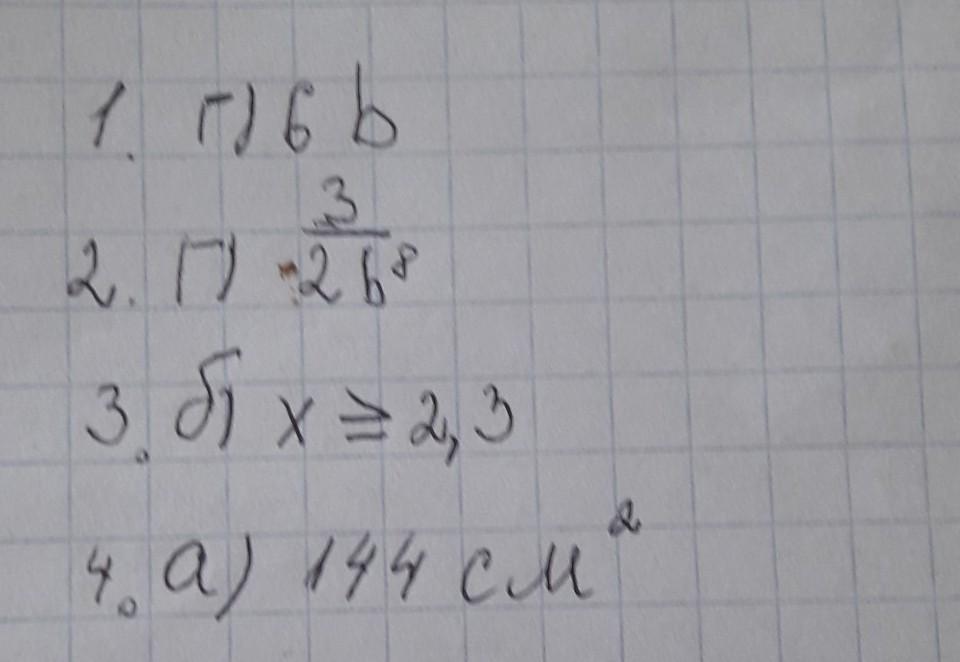 1. г) 6 b
2. г) 3/2b⁸
3. б) x ≥ 2,3
4. а) 144 см²